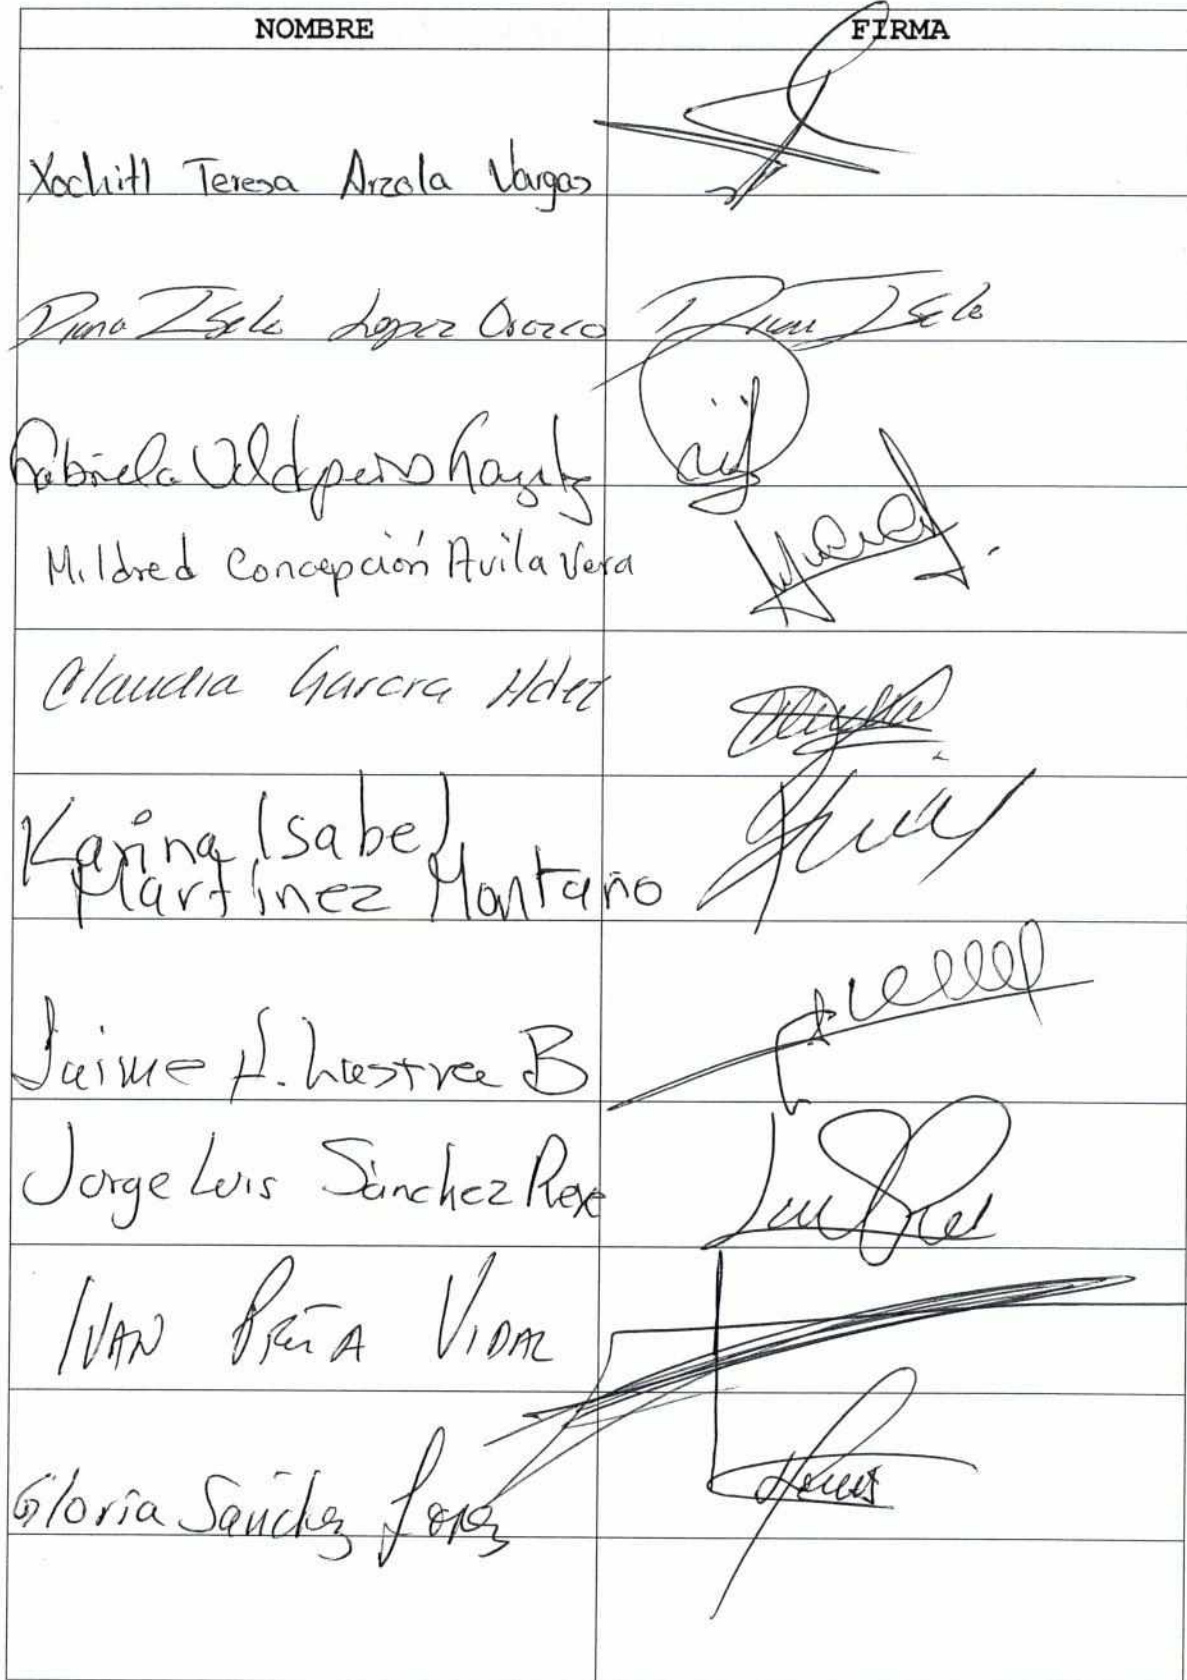 NOMBRE FIRMA
Xochitl Teresa Arzola Vargas
Diana Isela Lopez Orozco Diana Isela
Gabriela Valdepeñas
Mildred Concepción Avila Vera
Claudia Garcia Hdez
Karina Isabel
Martínez Montaño
Jaime H. Lastra B
Jorge Luis Sánchez Reye
IVAN PEÑA VIDAL
Gloria Sánchez Lopez